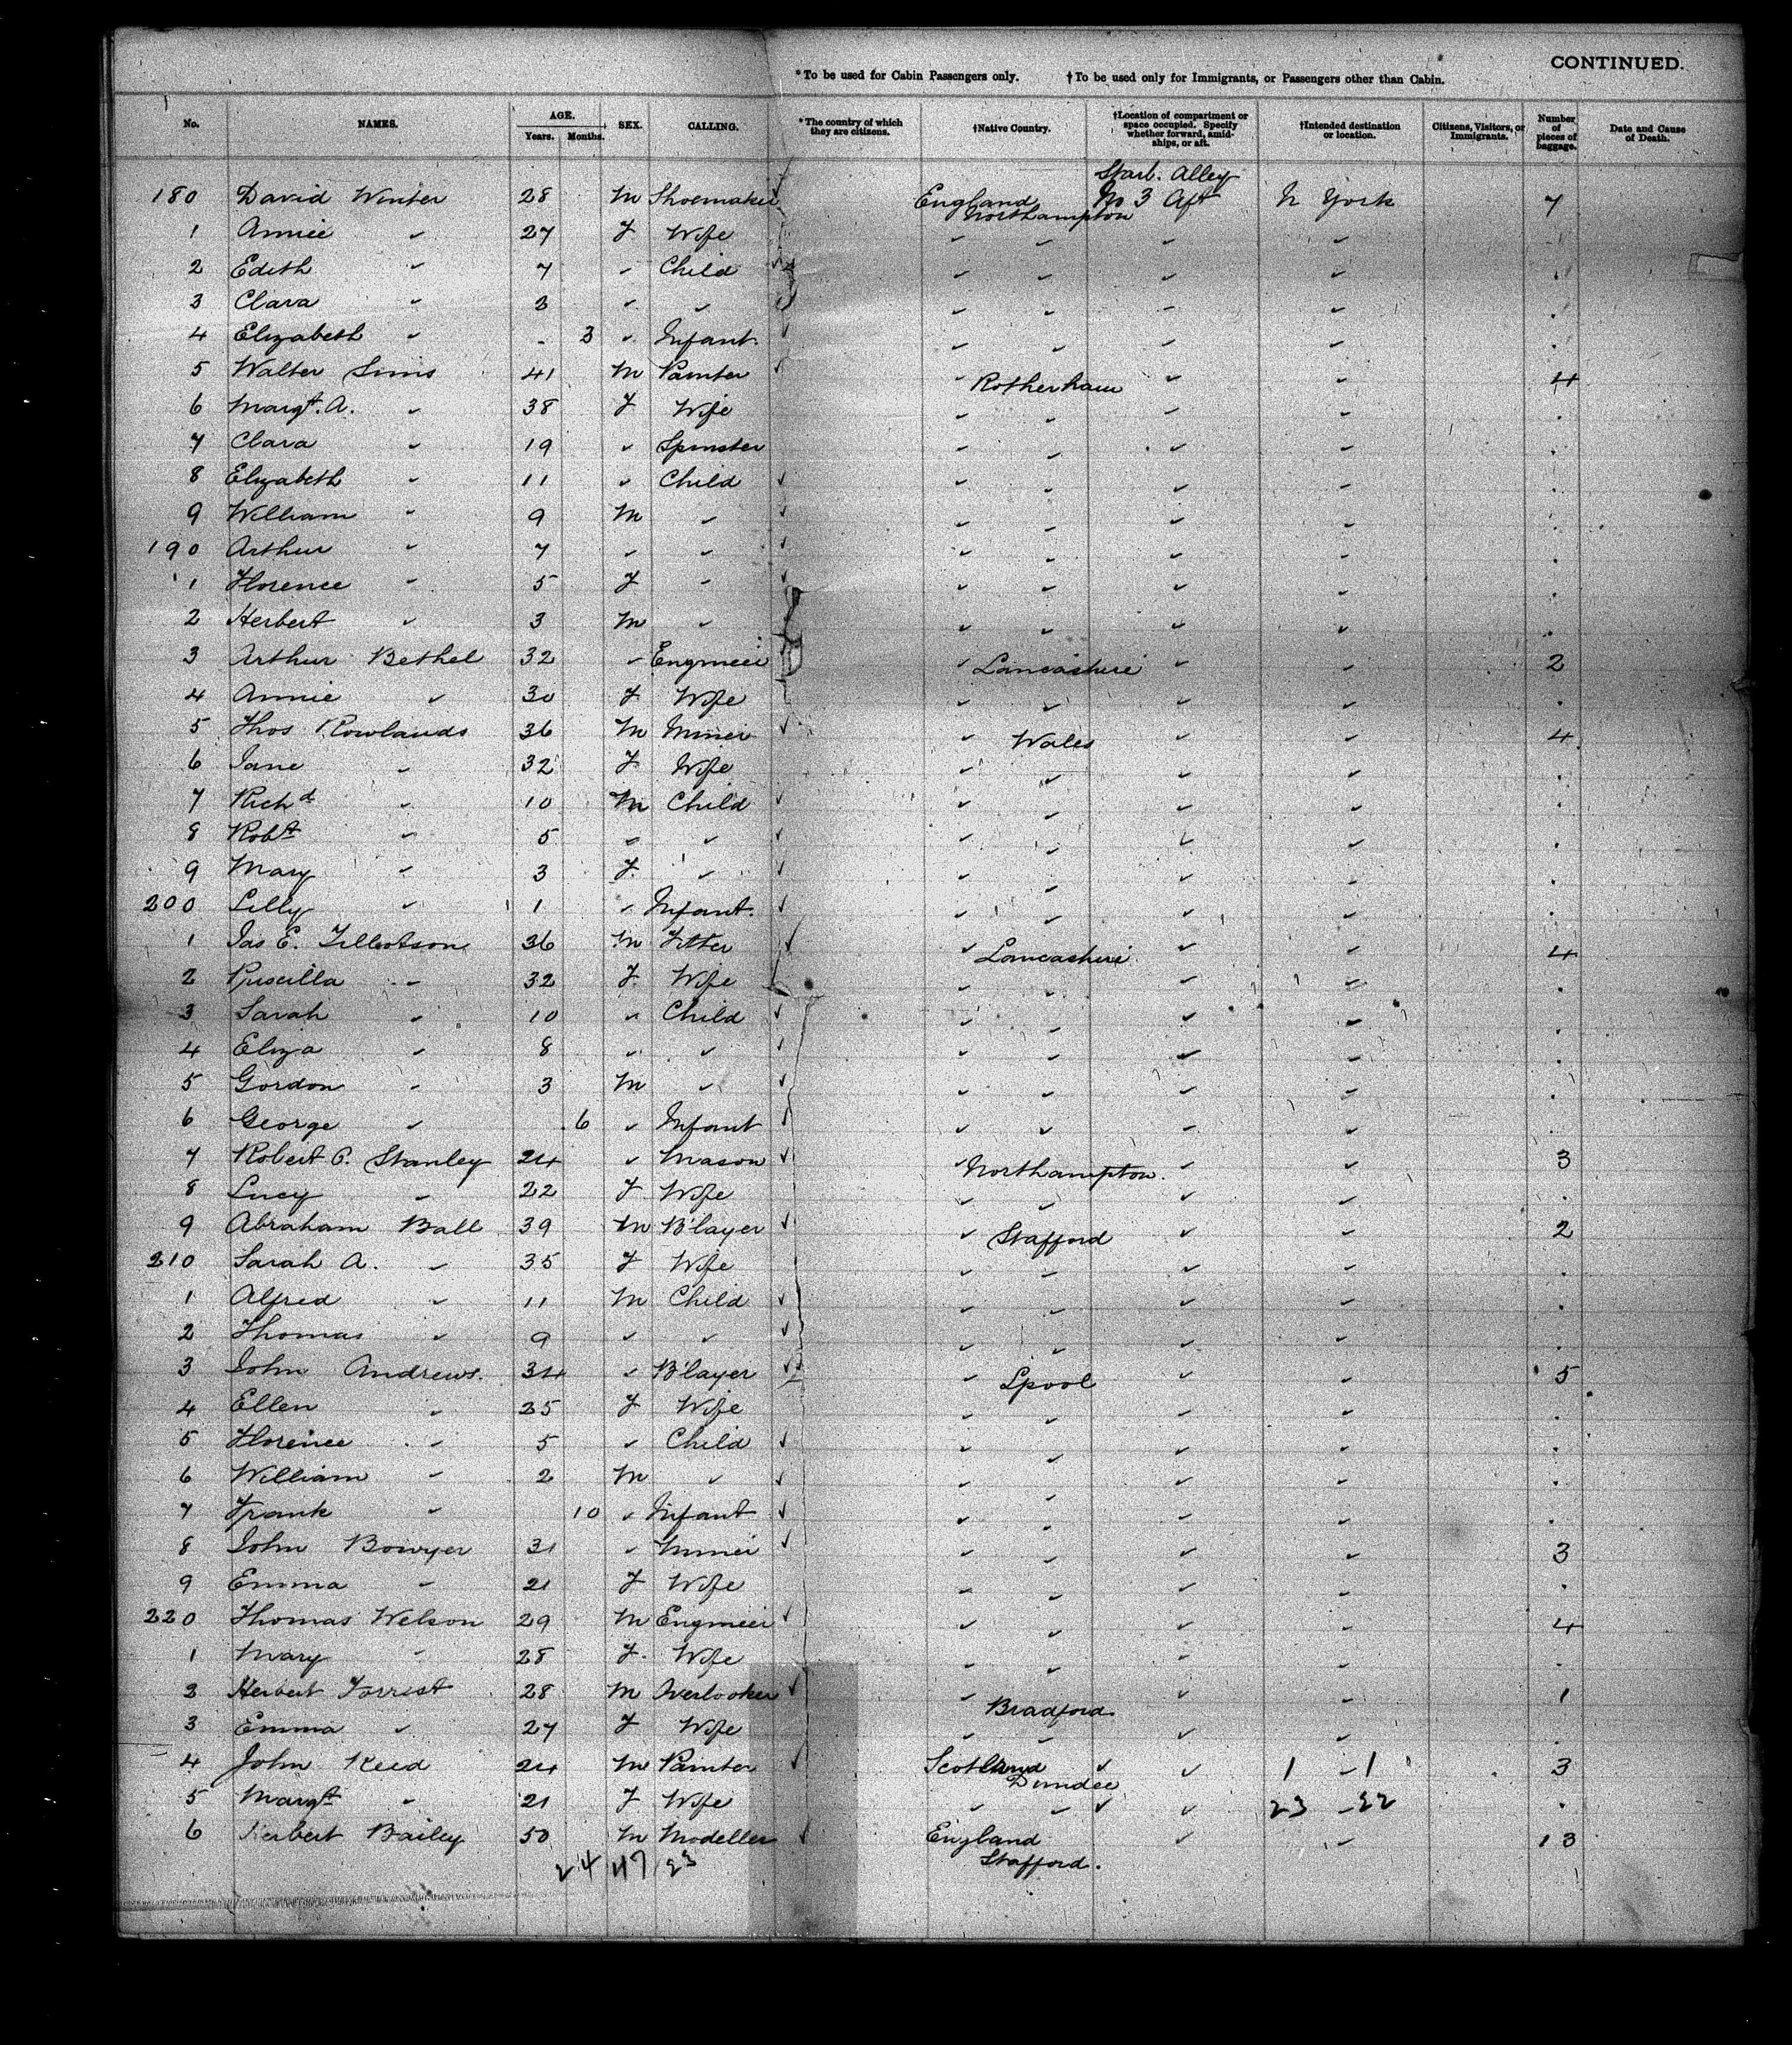 CONTINUED.
*To be used for Cabin Passengers only. †To be used only for Immigrants, or Passengers other than Cabin.
No. NAMES. AGE. Years. Months. SEX. CALLING. *The country of which they are citizens. †Native Country. †Location of compartment or space occupied. Specify whether forward, amidships, or aft. †Intended destination or location. Citizens, Visitors, or Immigrants. Number of pieces of baggage. Date and Cause of Death.
Starb. Alley
180 David Winter 28 M Shoemaker England Northampton No 3 Aft N York 7
1 Annie " 27 F Wife " " " "
2 Edith " 7 " Child " " " "
3 Clara " 3 " " " " " "
4 Elizabeth " - 3 " Infant. " " " "
5 Walter Sims 41 M Painter " Rotherham " " 4
6 Margt. A. " 38 F Wife " " " "
7 Clara " 19 " Spinster " " " "
8 Elizabeth " 11 " Child " " " "
9 William " 9 M " " " " "
190 Arthur " 7 " " " " " "
1 Florence " 5 F " " " " "
2 Herbert " 3 M " " " " "
3 Arthur Bethel 32 " Engineer " Lancashire " " 2
4 Annie " 30 F Wife " " " "
5 Thos Rowlands 36 M Miner " Wales " " 4
6 Jane " 32 F Wife " " " "
7 Richd " 10 M Child " " " "
8 Robt " 5 " " " " " "
9 Mary " 3 F " " " " "
200 Lilly " 1 " Infant. " " " "
1 Jas E. Tillotson 36 M Fitter " Lancashire " " 4
2 Priscilla " 32 F Wife " " " "
3 Sarah " 10 " Child " " " "
4 Eliza " 8 " " " " " "
5 Gordon " 3 M " " " " "
6 George " 6 " Infant " " " "
7 Robert P. Stanley 24 " Mason " Northampton. " " 3
8 Lucy " 22 F Wife " " " "
9 Abraham Ball 39 M B'layer " Stafford " " 2
210 Sarah A. " 35 F Wife " " " "
1 Alfred " 11 M Child " " " "
2 Thomas " 9 " " " " " "
3 John Andrews. 34 " B'layer " Lpool " " 5
4 Ellen " 25 F Wife " " " "
5 Florence " 5 " Child " " " "
6 William " 2 M " " " " "
7 Frank " 10 " Infant " " " "
8 John Bowyer 31 " Miner " " " " 3
9 Emma " 21 F Wife " " " "
220 Thomas Welson 29 M Engineer " " " " 4
1 Mary " 28 F Wife " " " "
2 Herbert Forrest 28 M Overlooker " Bradford. " " 1
3 Emma " 27 F Wife " " " "
4 John Reid 24 M Painter Scotland Dundee " 1 - 1 3
5 Margt " 21 F Wife " " " 23 - 22
6 Herbert Bailey 50 M Modeller England Stafford. " " 13
24 47 23